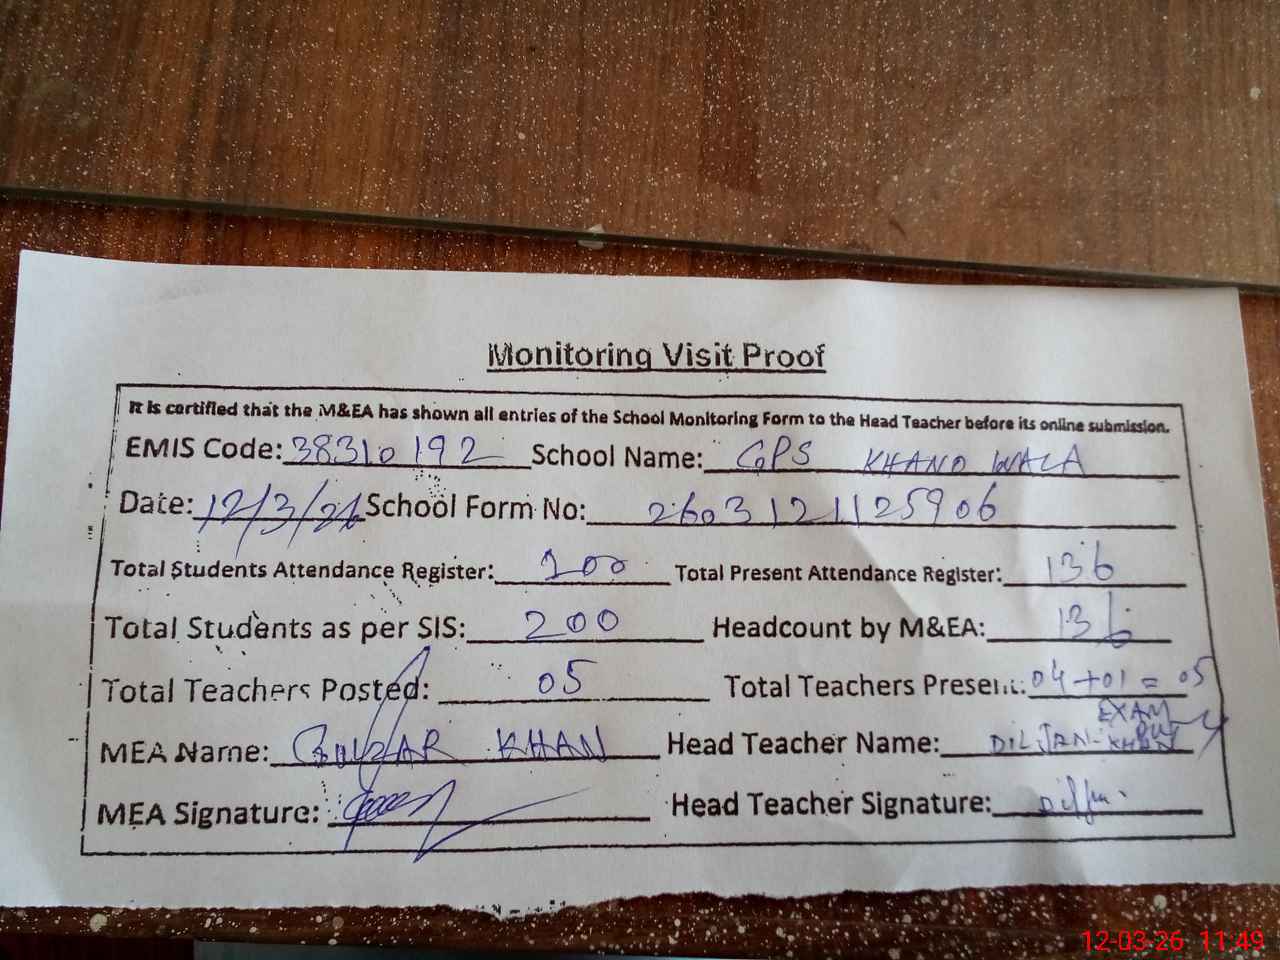 Monitoring Visit Proof
It is certified that the M&EA has shown all entries of the School Monitoring Form to the Head Teacher before its online submission.
EMIS Code: 38310192 School Name: GPS KHANO WALA
Date: 12/3/26 School Form No: 2603121125906
Total Students Attendance Register: 200 Total Present Attendance Register: 136
Total Students as per SIS: 200 Headcount by M&EA: 136
Total Teachers Posted: 05 Total Teachers Present: 04+01=05
EXAM
MEA Name: GULZAR KHAN Head Teacher Name: DIL JAN KHAN
MEA Signature: Head Teacher Signature:
12-03-26 11:49